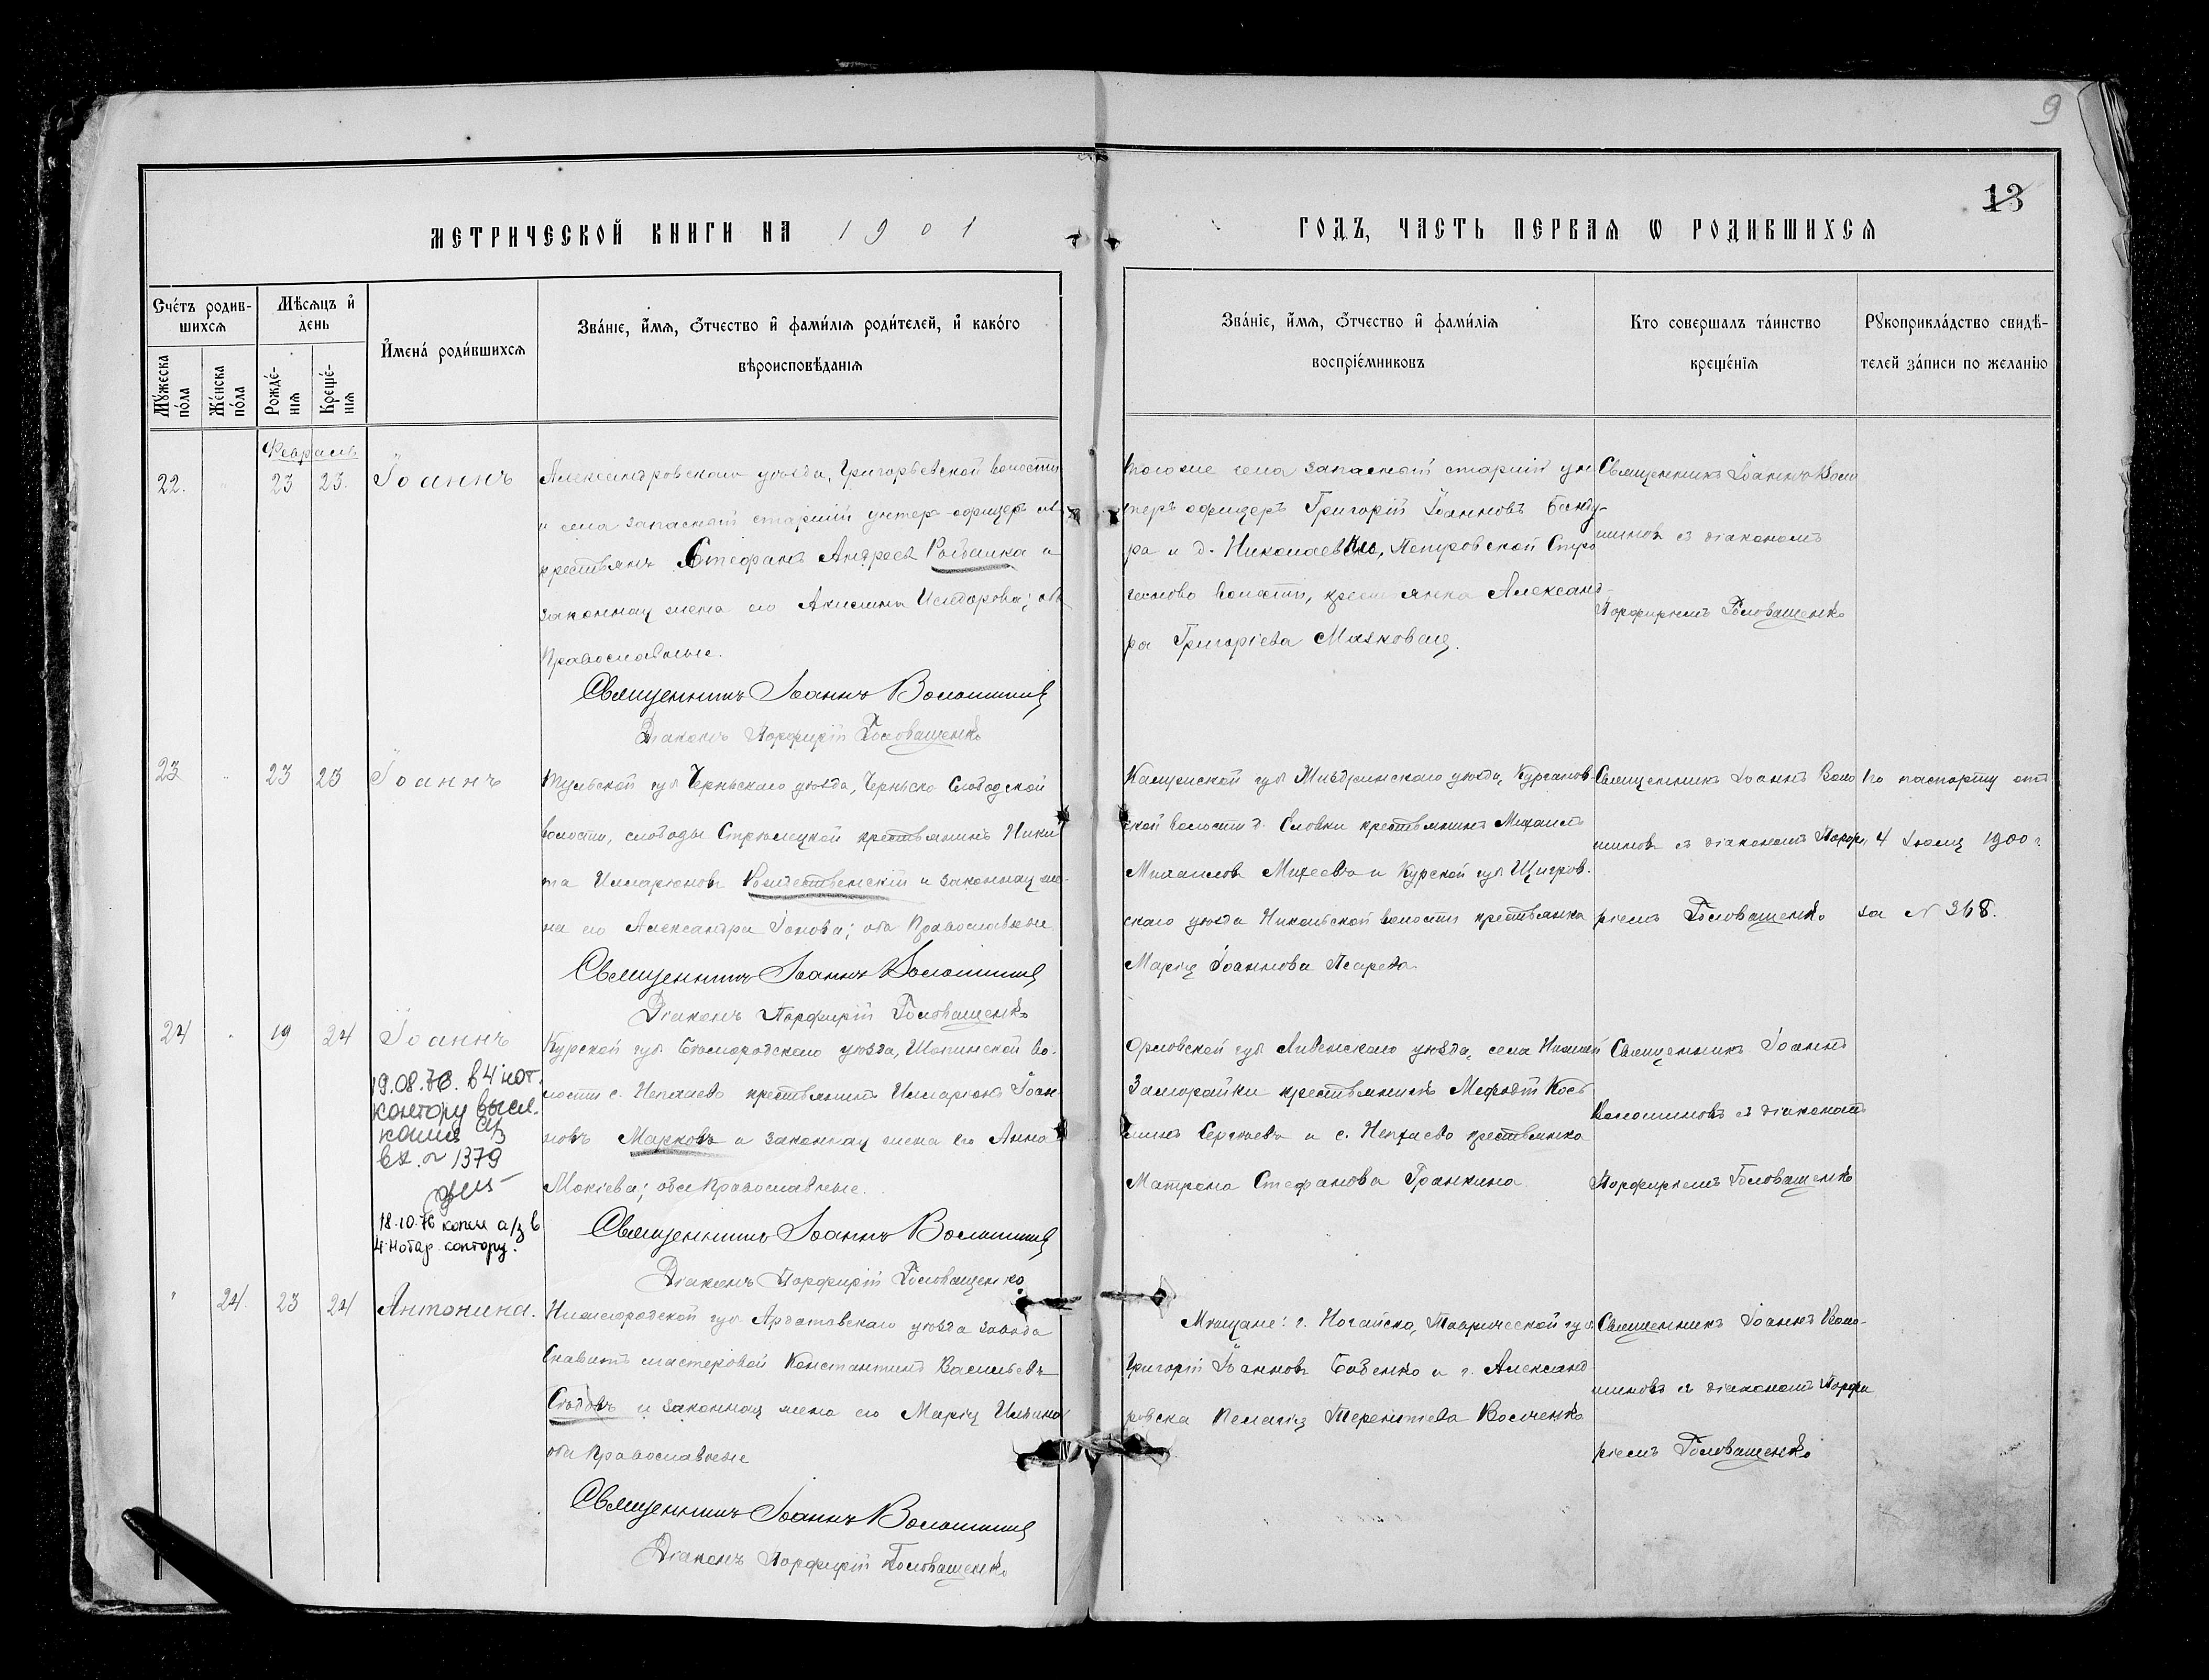 9
13
МЕТРИЧЕСКОЙ КНИГИ НА 1901
ГОДЪ, ЧАСТЬ ПЕРВАЯ Ѡ РОДИВШИХСЯ
Счéтъ родив-
шихся
Мѣсяцъ и
день
Имена́ роди́вшихся
Зва́нїе, и́мя, ѻ́тчество и фами́лїя роди́телей, и како́го
вѣроисповѣ́данїя
Мꙋ́жеска по́ла
Же́нска по́ла
Рожде́-
нїя
Креще́-
нїя
Зва́нїе, и́мя, ѻ́тчество и фами́лїя
воспрїе́мниковъ
Кто соверша́лъ та́инство
креще́нїя
Рꙋкоприкла́дство свидѣ́-
телей за́писи по жела́нїю
Февраль
22. 23 23. Іоаннъ
Александровскаго уѣзда, Григорьевской волости
и села запасный старшій унтер-офицеръ изъ
крестьянъ Стефанъ Андреев и
законная жена его Акилина Исидорова; оба
Православные.
Священникъ Іоаннъ Волошинов
Діаконъ Порфирій Головащенко
того же села запасный старшій ун
теръ офицеръ Григорій Іоанновъ Банду-
ра и д. Николаевки, Петровской
волости, крестьянка Александ-
ра Григоріева Маяковая.
Священникъ Іоаннъ Воло
шиновъ съ діакономъ
Порфиріемъ Головащенко
23 23 23 Іоаннъ
Тульской губ Черньскаго уѣзда, Черньско Слободской
волости, слободы Стрѣлецкой крестьянинъ Ники
та Илларіоновъ Рождественскій и законная же-
на его Александра Іонова; оба Православные
Священникъ Іоаннъ Волошинов
Діаконъ Порфирій Головащенко
Калужской губ Жиздринскаго уѣзда, Курганов-
ской волости д. Еловки крестьянинъ Михаилъ
Михаиловъ Михеевъ и Курской губ Щигров-
скаго уѣзда Никольской волости крестьянка
Марія Іоаннова Писарева
Священникъ Іоаннъ Воло
шиновъ съ діакономъ Порфи
ріемъ Головащенко
По паспорту отъ
4 Іюля 1900 г.
за № 368.
24 19 24 Іоаннъ
19.08.76. в 4 нот.
контору высл.
копия а/з
вх. № 1379
18.10.76 копия а/з в
4 нотар. контору.
Курской губ Бѣлгородскаго уѣзда, Шопинской во-
лости с. Непхаево крестьянинъ Илларіонъ Іоан
новъ Марковъ и законная жена его Анна
Мокіева; оба Православные.
Священникъ Іоаннъ Волошинов
Діаконъ Порфирій Головащенко
Орловской губ Ливенскаго уѣзда, села Нижней
Заморайки крестьянинъ Мефодій Кось
минъ Сергѣевъ и с. Непхаево крестьянка
Матрона Стефанова Гранкина.
Священникъ Іоаннъ
Волошиновъ съ діакономъ
Порфиріемъ Головащенко
" 24. 23 24 Антонина.
Нижегородской губ Ардатовскаго уѣзда завода
мастеровой Константинъ Васильевъ
и законная жена его Марія Ильина
оба Православные
Священникъ Іоаннъ Волошинов
Діаконъ Порфирій Головащенко
Мѣщане: г. Ногайска, Таврической губ
Григорій Іоанновъ Бабенко и г. Александ
ровска Пелагія Терентіева Волченко
Священникъ Іоаннъ Воло-
шиновъ съ діакономъ Порфи
ріемъ Головащенко